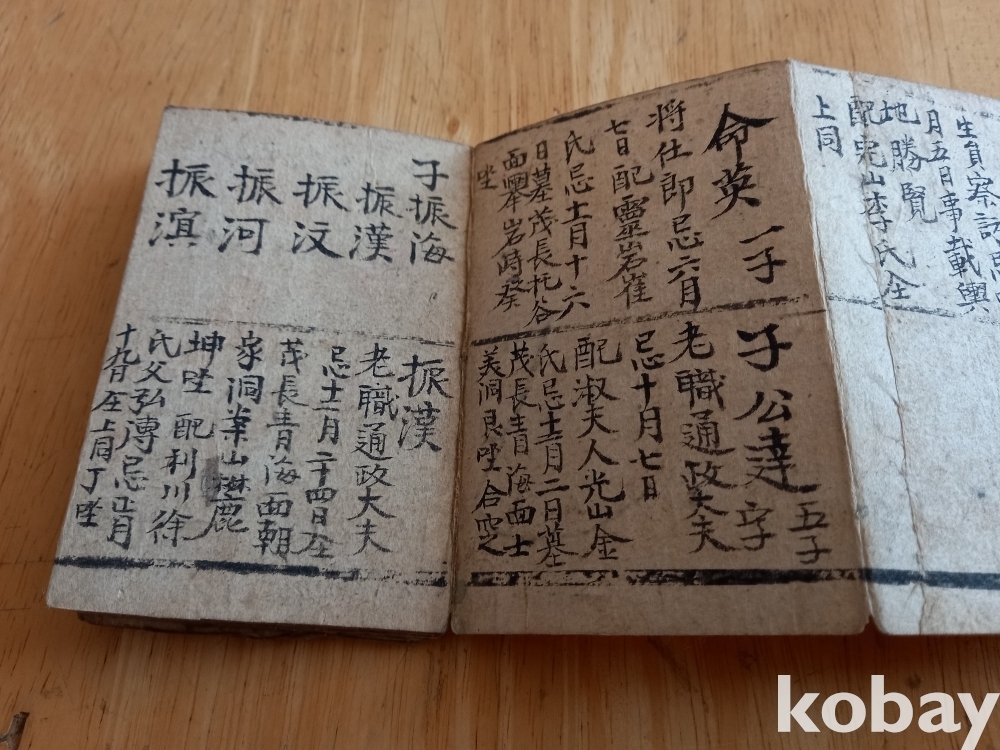 生員察訪
月五日事載輿
地勝覽
配完山李氏全
上同
命英 一子
将仕郎忌六月
七日配靈岩崔
氏忌十一月十六
日墓茂長托谷
面舉岩時癸
坐
子公達字
五子
老職通政大夫
忌十月七日
配淑夫人光山金
氏忌十二月二日墓
茂長青海面士
美洞艮坐合窆
子振海
振漢
振汶
振河
振淇
振漢
老職通政大夫
忌十二月二十四日全
茂長青海面朝
家洞峯山樾麓
坤坐 配利川徐
氏父弘溥忌正月
十九日左上同丁坐
kobay